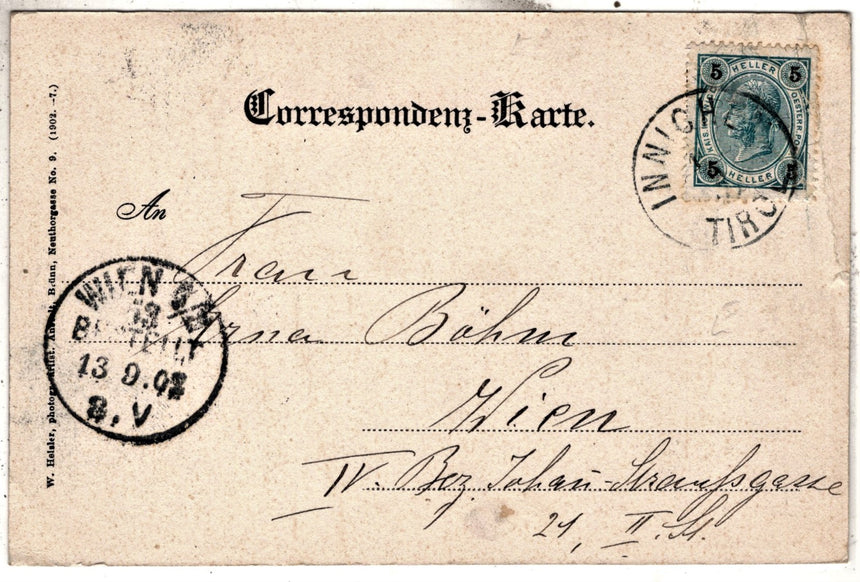 Correspondenz-Karte.
5 HELLER 5
KAIS. OESTERR. PO
5 HELLER 5
INNICHE
TIROL
An
Frau
Erna Böhm
Wien
IV. Bez. Johann-Straussgasse
21, II. St.
WIEN 5/2
BESTELLT
13 9.02
8.V
W. Heisler, photogr.-artist. Anstalt, Brünn, Neuthorgasse No. 9. (1902.-7.)